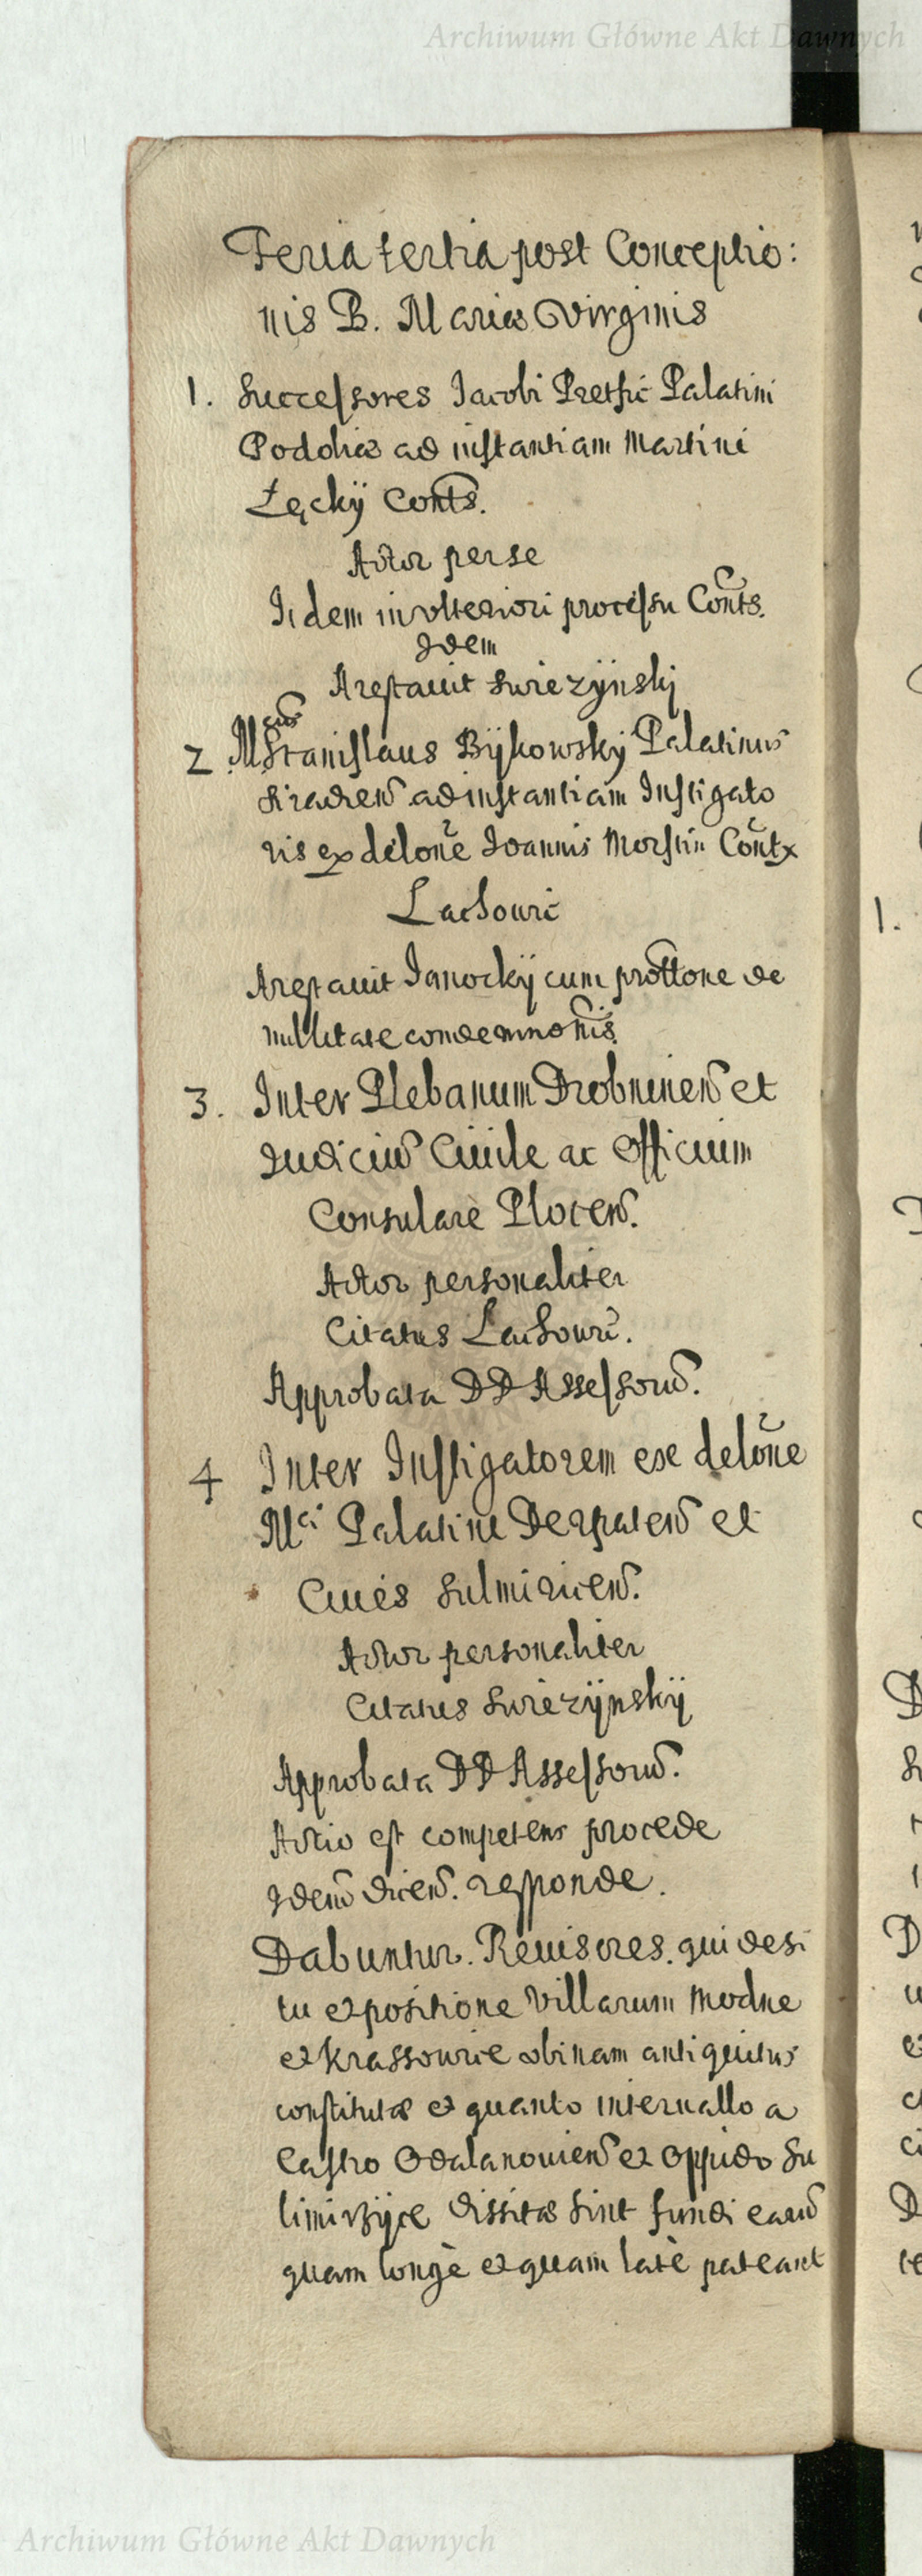 Archiwum Główne Akt Dawnych
Feria tertia post Conceptio:
nis B. Mariæ Virginis
1. Successores Jacobi Pretfic Palatini
Podoliæ ad instantiam Martini
Łęckÿ Conts.
Actor per se
Iidem in ulteriori processu Conts.
Idem
Arestauit Swiezÿnskj
2 M cus Stanislaus Bÿkowskÿ Palatinus
Siradien ad instantiam Instigato
ris ex delõne Joannis Morstin Contx
Lachowic
Arestauit Janockÿ cum prottone de
nullitate condemnonis.
3. Inter Plebanum Drobninen et
Iudiciu Ciuile ac Officium
Consulare Plocen.
Actor personaliter
Citatus Lachowic.
Approbata DD Assessoru.
4 Inter Instigatorem exe delõne
Mci Palatini Derpaten et
Ciues Sulmiricen.
Actor personaliter
Citatus Swiezÿnskÿ
Approbata DD Assessoru.
Actio est competens procede
Idem dicen. responde.
Dabuntur. Reuisores. qui de si
tu expositione Villarum Modne
et Krassowie ubinam antiquitus
constitutæ et quanto interuallo a
Castro Odalanouien et oppido Su
limirzÿce dissitæ sint fundi earu
quam longè et quam latè pateant
1.
Archiwum Główne Akt Dawnych